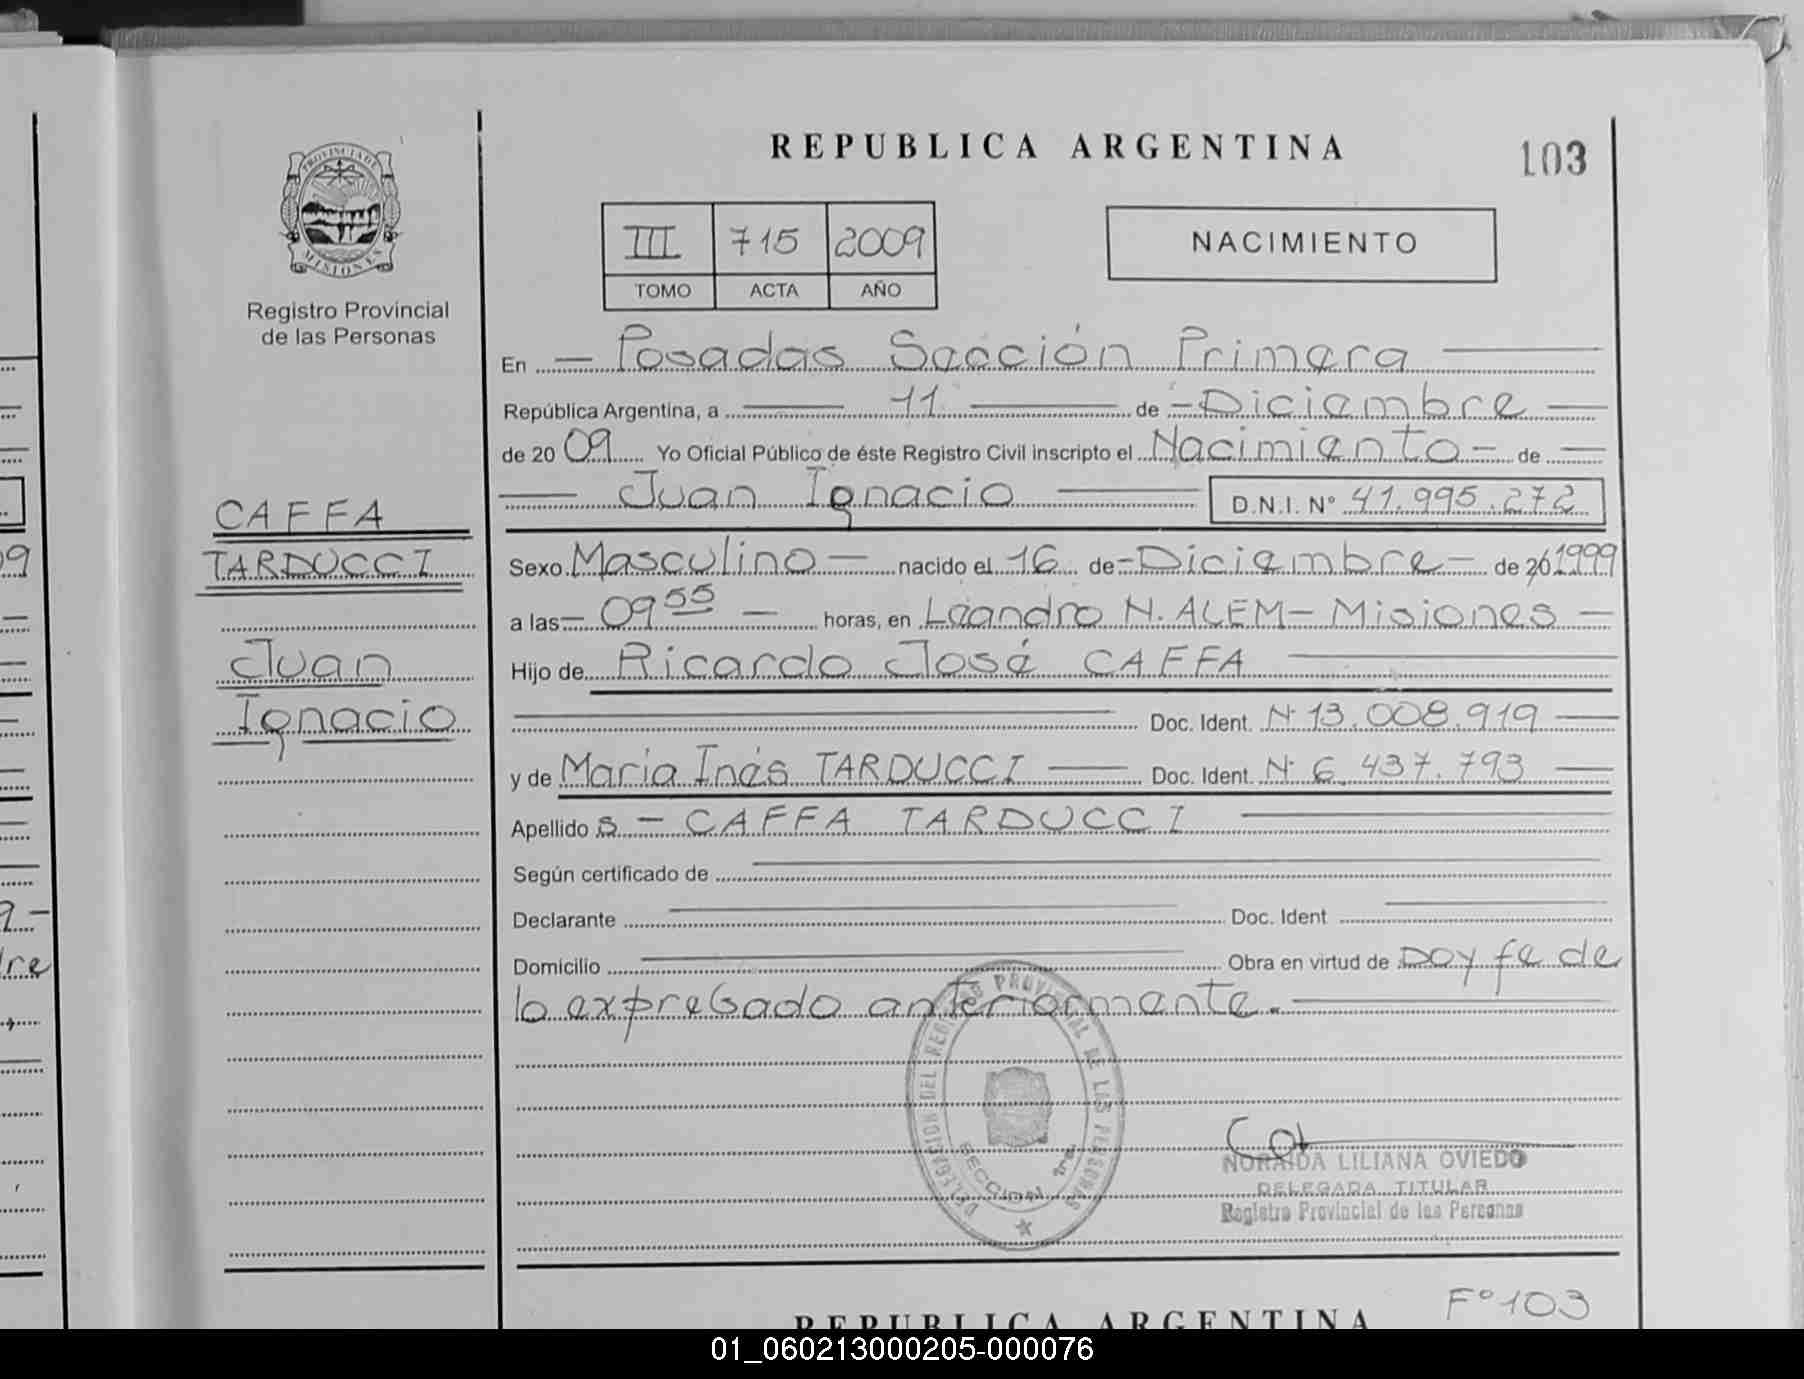 PROVINCIA DE
MISIONES
Registro Provincial
de las Personas
REPUBLICA ARGENTINA
103
III 715 2009
TOMO ACTA AÑO
NACIMIENTO
En — Posadas Sección Primera —
República Argentina, a — 11 — de - Diciembre —
de 20 09 Yo Oficial Público de éste Registro Civil inscripto el Nacimiento - de —
— Juan Ignacio — D.N.I. N° 41.995.272
CAFFA
TARDUCCI
Juan
Ignacio
Sexo Masculino — nacido el 16 de - Diciembre - de 20 1999
a las — 09 55 — horas, en Leandro N. ALEM - Misiones -
Hijo de Ricardo José CAFFA —
— Doc. Ident. N° 13.008.919 —
y de Maria Inés TARDUCCI — Doc. Ident. N° 6.437.793 —
Apellido s - CAFFA TARDUCCI —
Según certificado de —
Declarante — Doc. Ident —
Domicilio — Obra en virtud de Doy fe de
lo expresado anteriormente. —
DELEGACION DEL REGISTRO PROVINCIAL DE LAS PERSONAS
SECCION 1ra.
NORAIDA LILIANA OVIEDO
DELEGADA TITULAR
Registro Provincial de las Personas
F° 103
REPUBLICA ARGENTINA
01_060213000205-000076